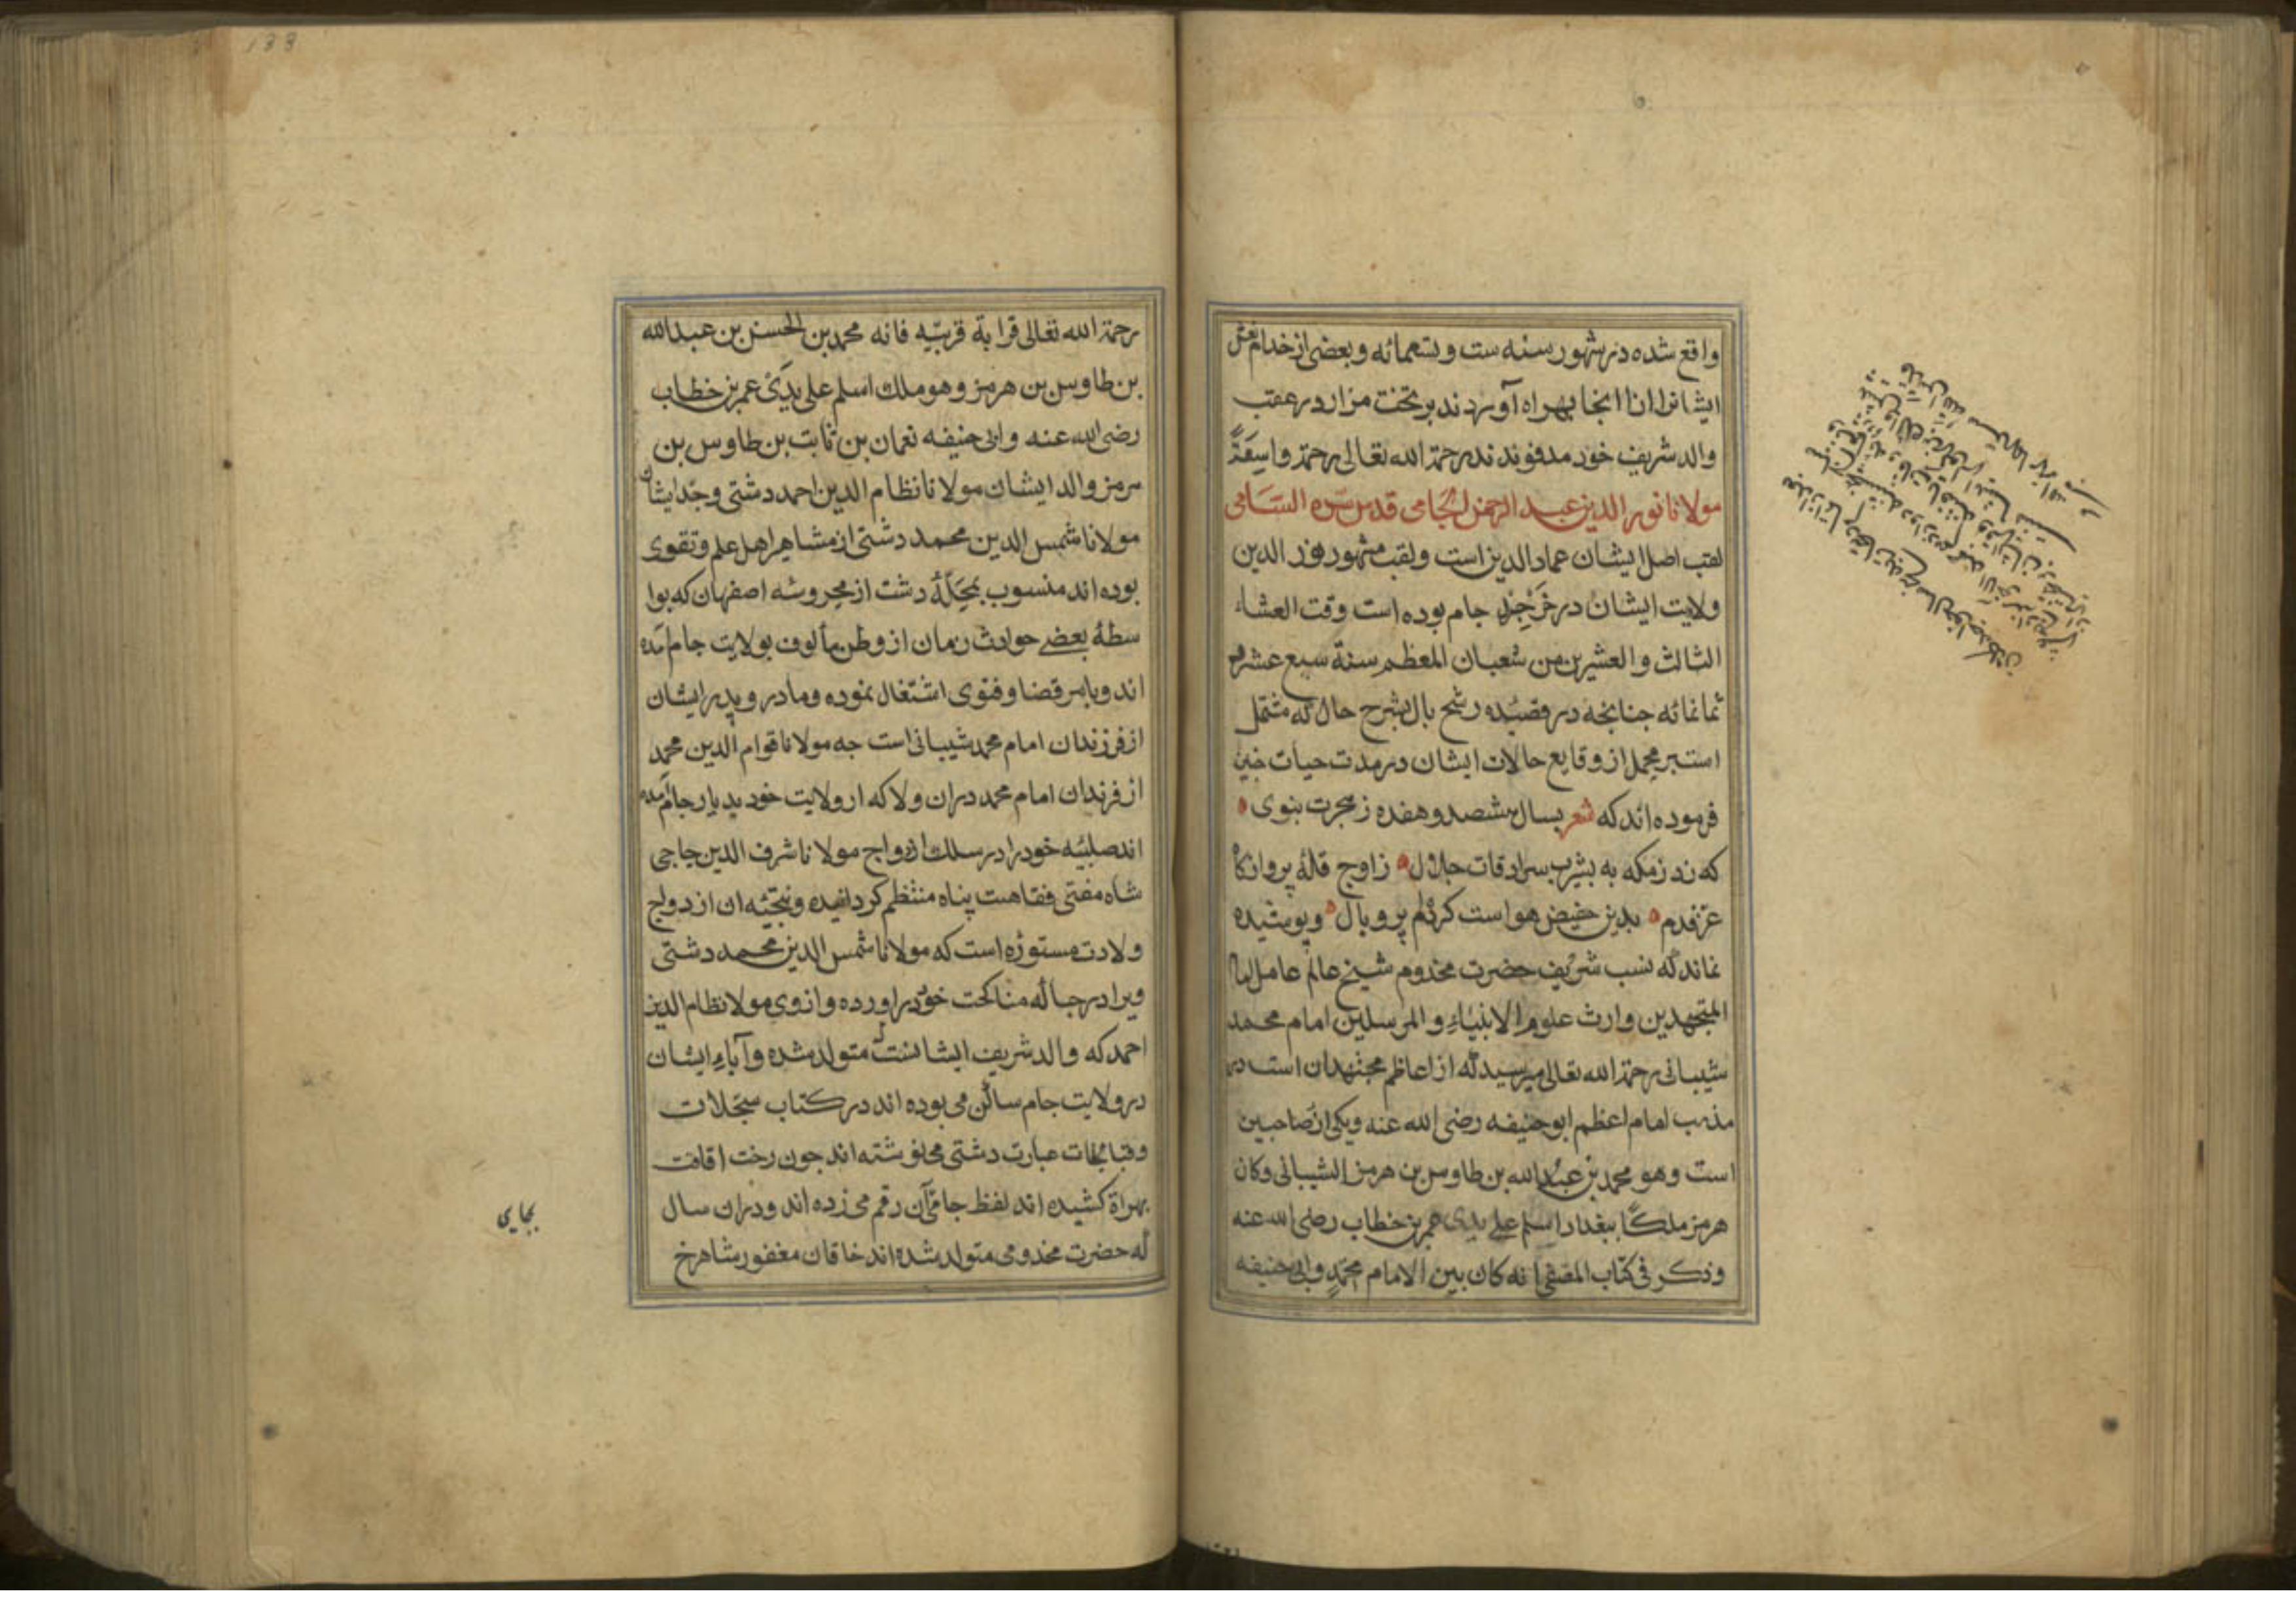 واقع شده در شهور سنه ست و تسعمائه و بعضی از خدام نعش
ایشانرا از انجا بهراه آورده‌ند بر تخت مزار در عقب
والد شریف خود مدفونند رحمة الله تعالی رحمة واسِعَةً
مولانا نور الدین عبد الرحمن الجامی قدس سره السّامی
لقب اصل ایشان عماد الدین است و لقب مشهور نور الدین
ولایت ایشان در خَرجِرد جام بوده است وقت العشاء
الثالث و العشرین من شعبان المعظم سنة سبع عشر و
ثمانمائه جنانجه در قصیده رشح بال بشرح حال که مشتمل
است بر مجمل از وقایع حالات ایشان در مدت حیات جنین
فرموده اند که شعر بسال هشصد و هفده ز هجرت نبوی
که زد ز مکه به یثرب سرادقات جلال زاوج قلهٔ پروازکاه
عز قدم بدین حضیض هوا سست کرده‌ام پر و بال و پوشیده
نماند که نسب شریف حضرت مخدوم شیخ عالم عامل امام
المجتهدین وارث علوم الانبیاء و المرسلین امام محمد
شیبانی رحمة الله تعالی میرسید که از اعاظم مجتهدان است در
مذهب امام اعظم ابو حنیفه رضی الله عنه و یکی از صاحبین
است و هو محمد بن عبد الله بن طاوس بن هرمز الشیبانی و کان
هرمز ملکًا ببغداد اسلم علی یدی عمر بن خطاب رضی الله عنه
و ذکر فی کتاب المصفی انه کان بین الامام محمّدٍ و ابی حنیفه
رحمة الله تعالی قرابة قریبیّه فانه محمد بن الحسن بن عبد الله
بن طاوس بن هرمز و هو ملک اسلم علی یدَیْ عمر بن خطاب
رضی الله عنه و ابی حنیفه نعمان بن ثابت بن طاوس بن
هرمز والد ایشان مولانا نظام الدین احمد دشتی و جدّ ایشان
مولانا شمس الدین محمد دشتی از مشاهیر اهل علم و تقوی
بوده اند منسوب بمَحَلّهٔ دشت از محروسه اصفهان که بوا
سطهٔ بعضے حوادث زمان از وطن مألوف بولایت جام آمده
اند و بامر قضا و فتوی اشتغال نموده و مادر و پدر ایشان
از فرزندان امام محمد شیبانی است جه مولانا قوام الدین محمد
از فرزندان امام محمد دران ولا که از ولایت خود بدیار جام آمده
اند صلبیّه خود را در سلک ازدواج مولانا شرف الدین حاجی
شاه مفتی فقاهت پناه منتظم کردانیده و نتیجه ان ازدواج
ولادت مستوره است که مولانا شمس الدین محمد دشتی
ویرا در حباله مناکحت خود دراورده و از وی مولانا نظام الدین
احمد که والد شریف ایشانست متولد شده و آباءِ ایشان
در ولایت جام ساکن می بوده اند در کتاب سجّلات
و قبالجات عبارت دشتی می نوشته اند جون رخت اقامت
بهراة کشیده اند لفظ جامی آن رقم می زده اند و دران سال
که حضرت مخدومی متولد شده اند خاقان مغفور شاهرخ
بجای
133